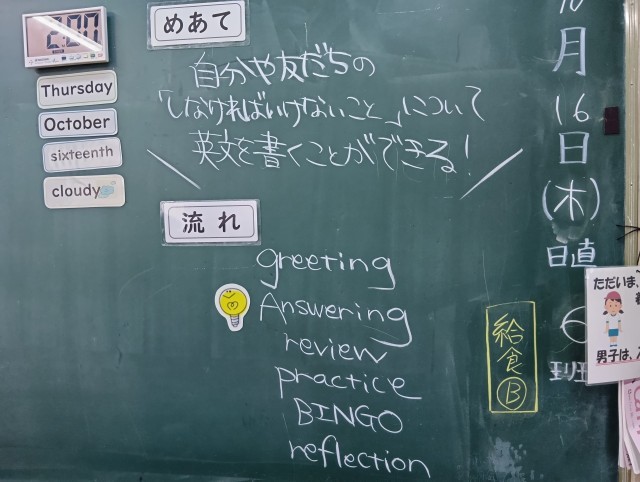 めあて
自分や友だちの
「しなければいけないこと」について
英文を書くことができる!
Thursday
October
sixteenth
cloudy
流れ
greeting
Answering
review
practice
BINGO
reflection
給食Ⓑ
月
16
日
(木)
日直
6
班
ただいま、
男子は、